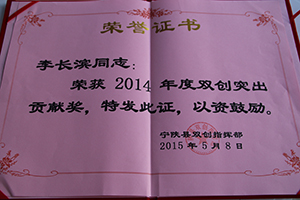 荣誉证书
李长滨同志:
荣获 2014 年度双创突出
贡献奖，特发此证，以资鼓励。
宁陕县双创指挥部
2015 年 5 月 8 日